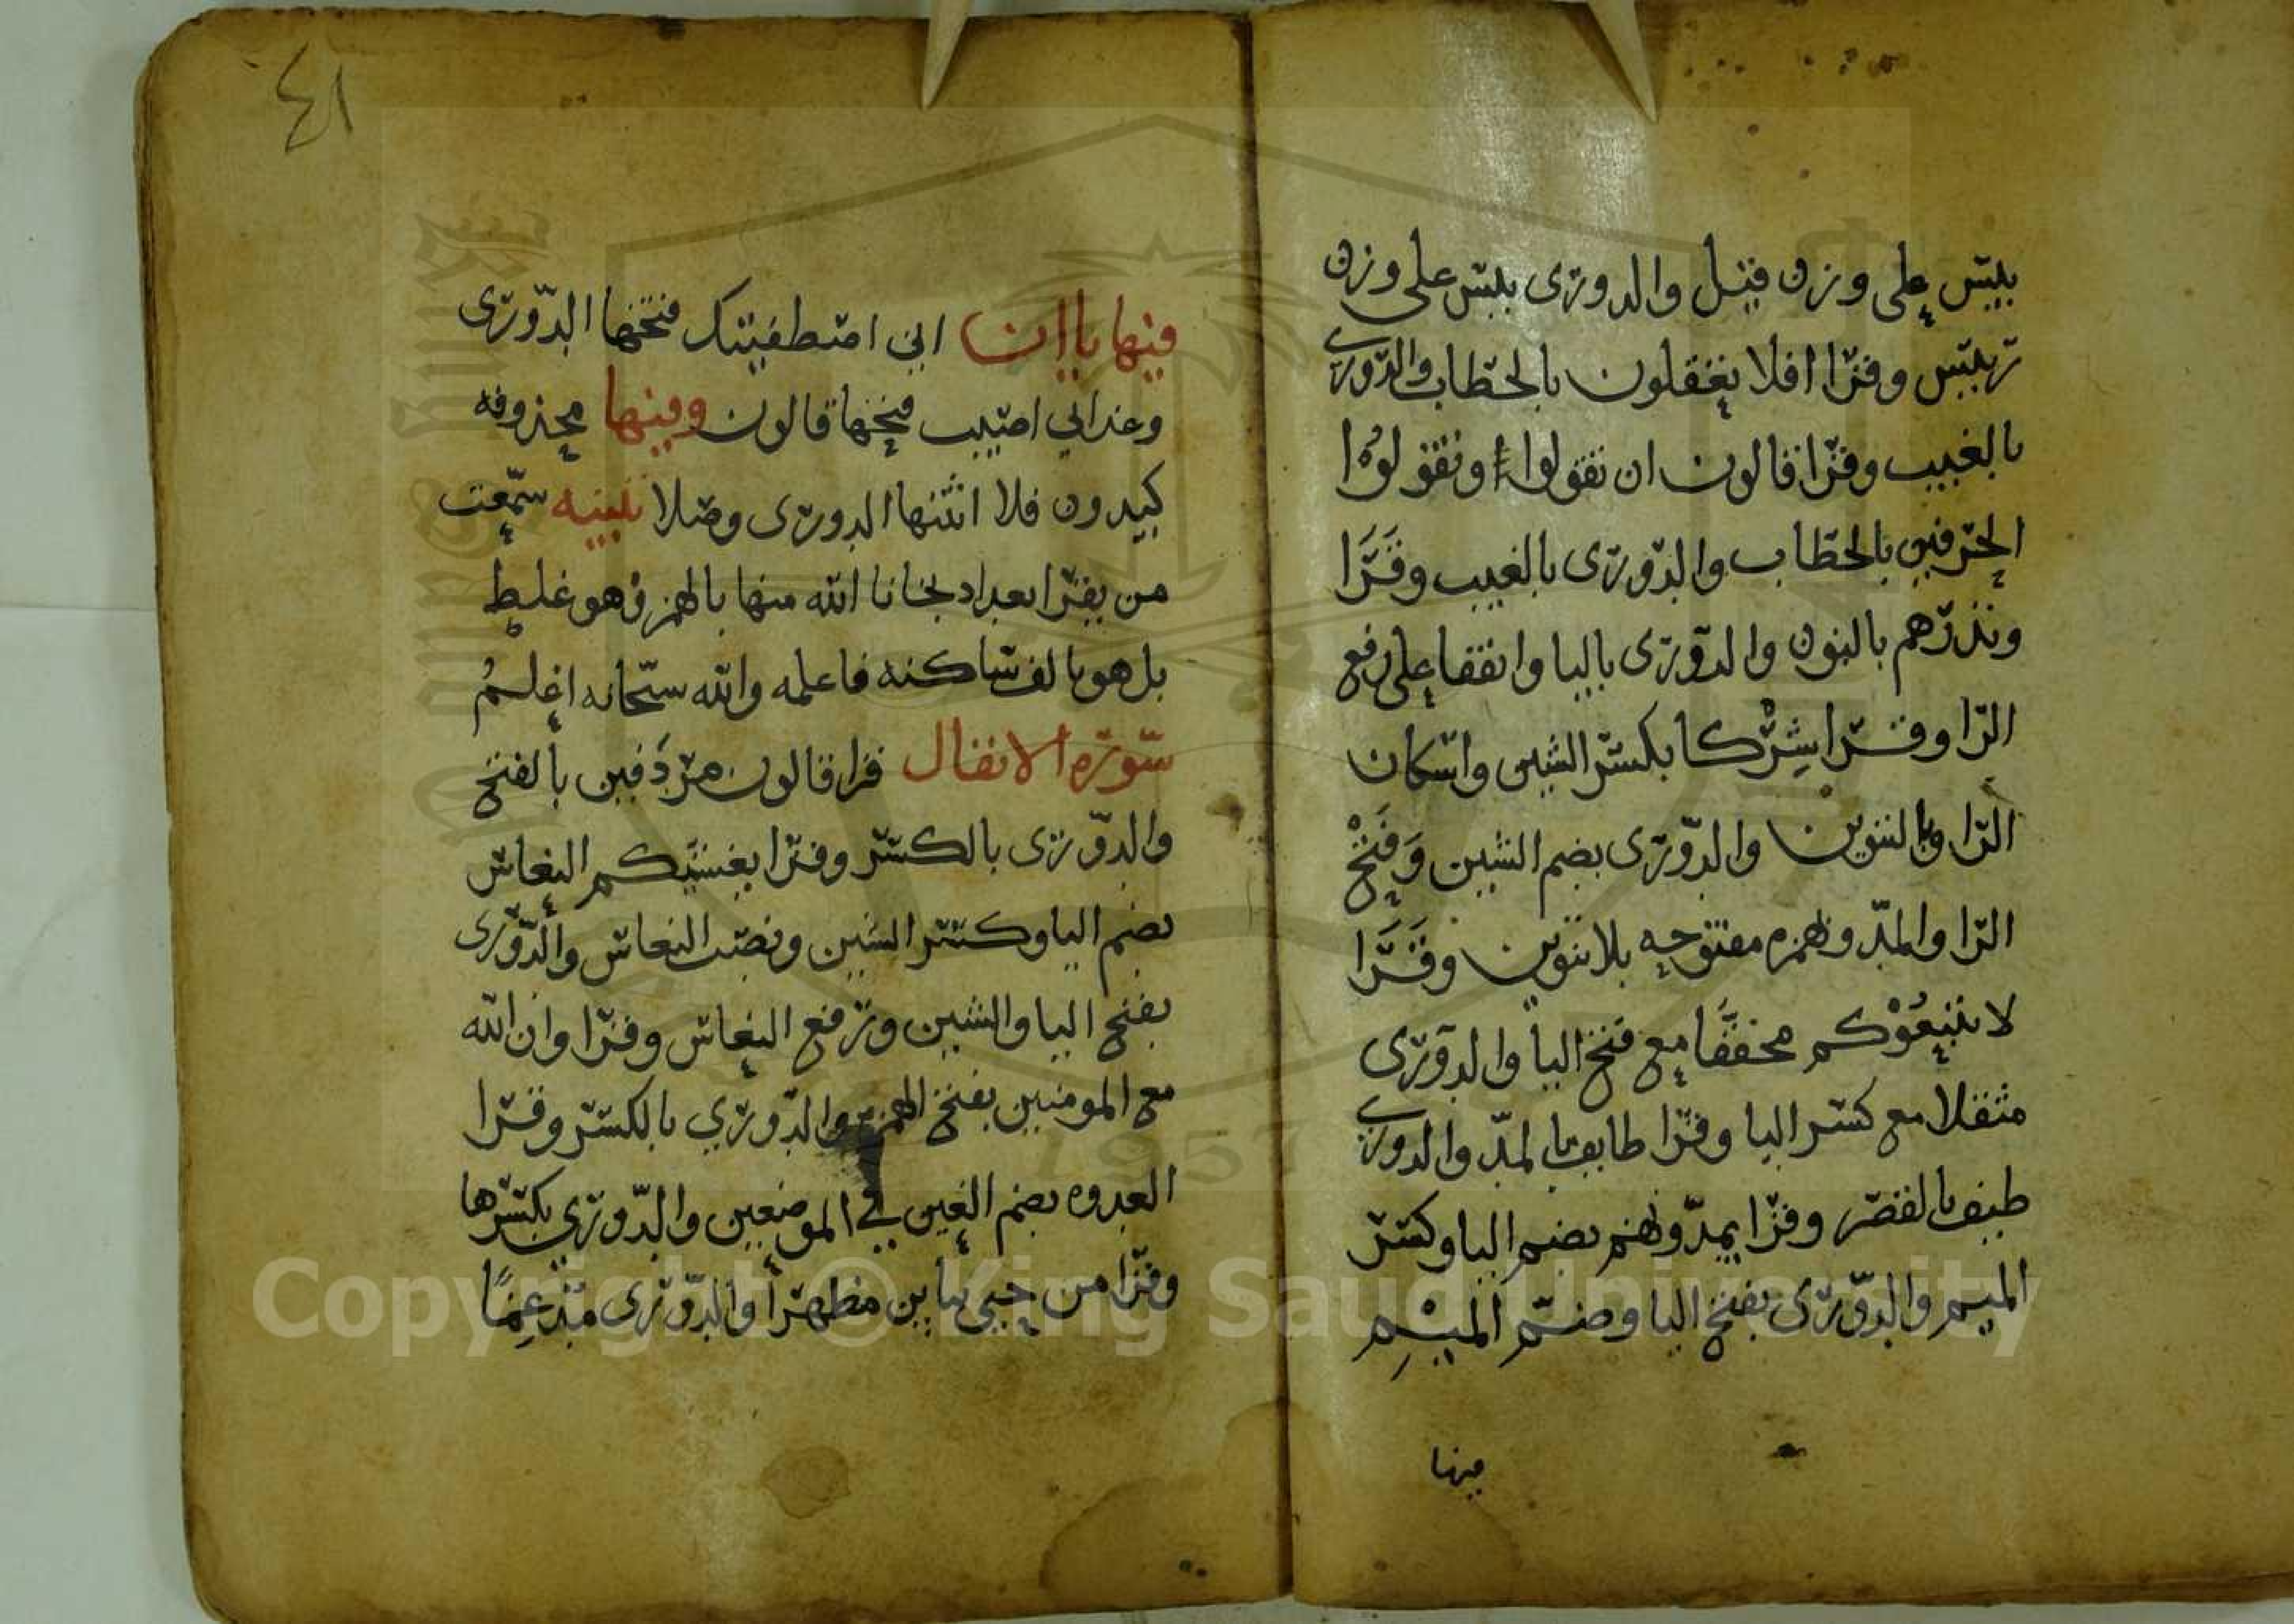 بييس على وزن فيل والدورى بييس على وزن
رييس وقرا افلا يعقلون بالخطاب والدورى
بالغيب وقرا قالون ان تقولوا او تقولوا
الحرفين بالخطاب والدّورى بالغيب وقَرَا
ونذرهم بالنون والدورى باليا واتفقا على رفع
الرا وقرا شِرْكا بكسر الشين واسكان
الرا وبالتنوين والدّورى بضم الشين وَفَتْح
الرا والمدّ وهمزه مفتوحه بلا تنوين وقَرَا
لا يتبعُوْكم مخففًا مع فتح البا والدورى
مثقلا مع كسر البا وقرا طايف بالمدّ والدورى
طيف بالقصر وقرا يمدّونهم بضم اليا وكسر
الميم والدّورى بفتح اليا وضمّ الميْمِ
فيها
٤١
فيها ياان اني اصطفيتك فتحها الدّورى
وعذابي اصيب فتحها قالون وفيها محذوفه
كيدون فلا اثبتها الدورى وصلا تنبيه سمعت
من يقرا بعدا دلجانا الله منها بالهمز وهو غلط
بل هو بالف ساكنه فاعلمه والله سبحانه اعلمُ
سورة الانفال قرا قالون مردَفين بالفتح
والدّورى بالكسر وقرا يغشيكم النعاس
بضم اليا وكسر الشين ونصب النعاس والدّورى
بفتح اليا والشين ورفع النعاس وقرا وان الله
مع المومنين بفتح الهمزة والدّوري بالكسر وقرا
العدوه بضم العين في الموضعين والدّوري بكسرها
وقرا من حيي بيايين مظهرا والدّورى مدغمًا
Copyright © King Saud University
1957